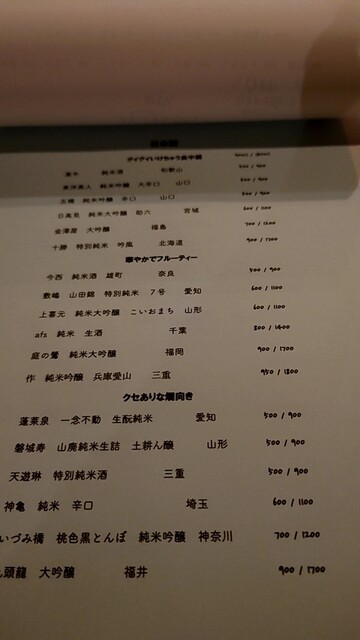 グイグイいけちゃう食中酒
純米酒 和歌山
東洋美人 純米吟醸 大辛口 山口
五橋 純米吟醸 辛口 山口 500 / 900
日高見 純米大吟醸 助六 宮城 600 / 1100
会津屋 大吟醸 福島 700 / 1200
十勝 特別純米 吟風 北海道 900 / 1700
華やかでフルーティー
今西 純米酒 雄町 奈良 500 / 900
敷嶋 山田錦 特別純米 7号 愛知 600 / 1100
上喜元 純米大吟醸 こいおまち 山形 600 / 1100
afs 純米 生酒 千葉 800 / 1600
庭の鶯 純米大吟醸 福岡 900 / 1700
作 純米吟醸 兵庫愛山 三重 950 / 1800
クセありな燗向き
蓬莱泉 一念不動 生酛純米 愛知 500 / 900
磐城寿 山廃純米生詰 土耕ん醸 山形 500 / 900
天遊琳 特別純米酒 三重 500 / 900
神亀 純米 辛口 埼玉 600 / 1100
いづみ橋 桃色黒とんぼ 純米吟醸 神奈川 700 / 1200
頭龍 大吟醸 福井 900 / 1700